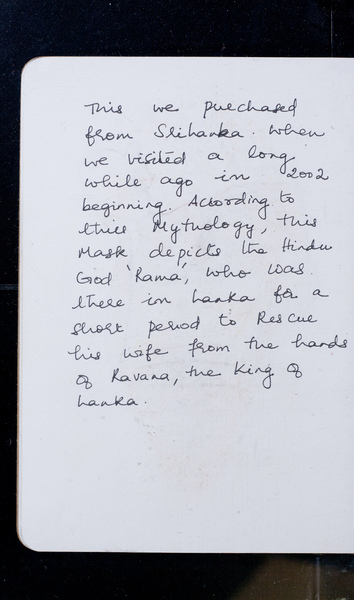 This we purchased
from Srilanka. When
we visited a long
while ago in 2002
beginning. According to
their Mythology, this
Mask depicts the Hindu
God 'Rama', who was
there in Lanka for a
short period to Rescue
his wife from the hands
of Ravana, the King of
Lanka.